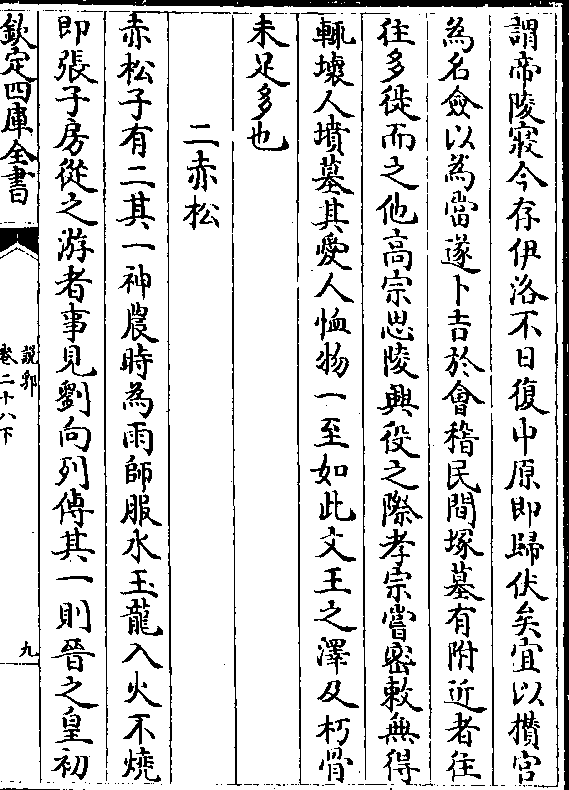 謂帝陵寢今存伊洛不日復中原即歸伏矣宜以攢宫
為名僉以為當遂卜吉於會稽民間塚墓有附近者往
往多徙而之他高宗思陵興役之際孝宗嘗密敕無得
輒壞人墳墓其愛人恤物一至如此文王之澤及朽骨
未足多也
二赤松
赤松子有二其一神農時為雨師服水玉龍入火不燒
即張子房從之游者事見劉向列傳其一則晉之皇初
欽定四庫全書
説郛
卷二十八下
九